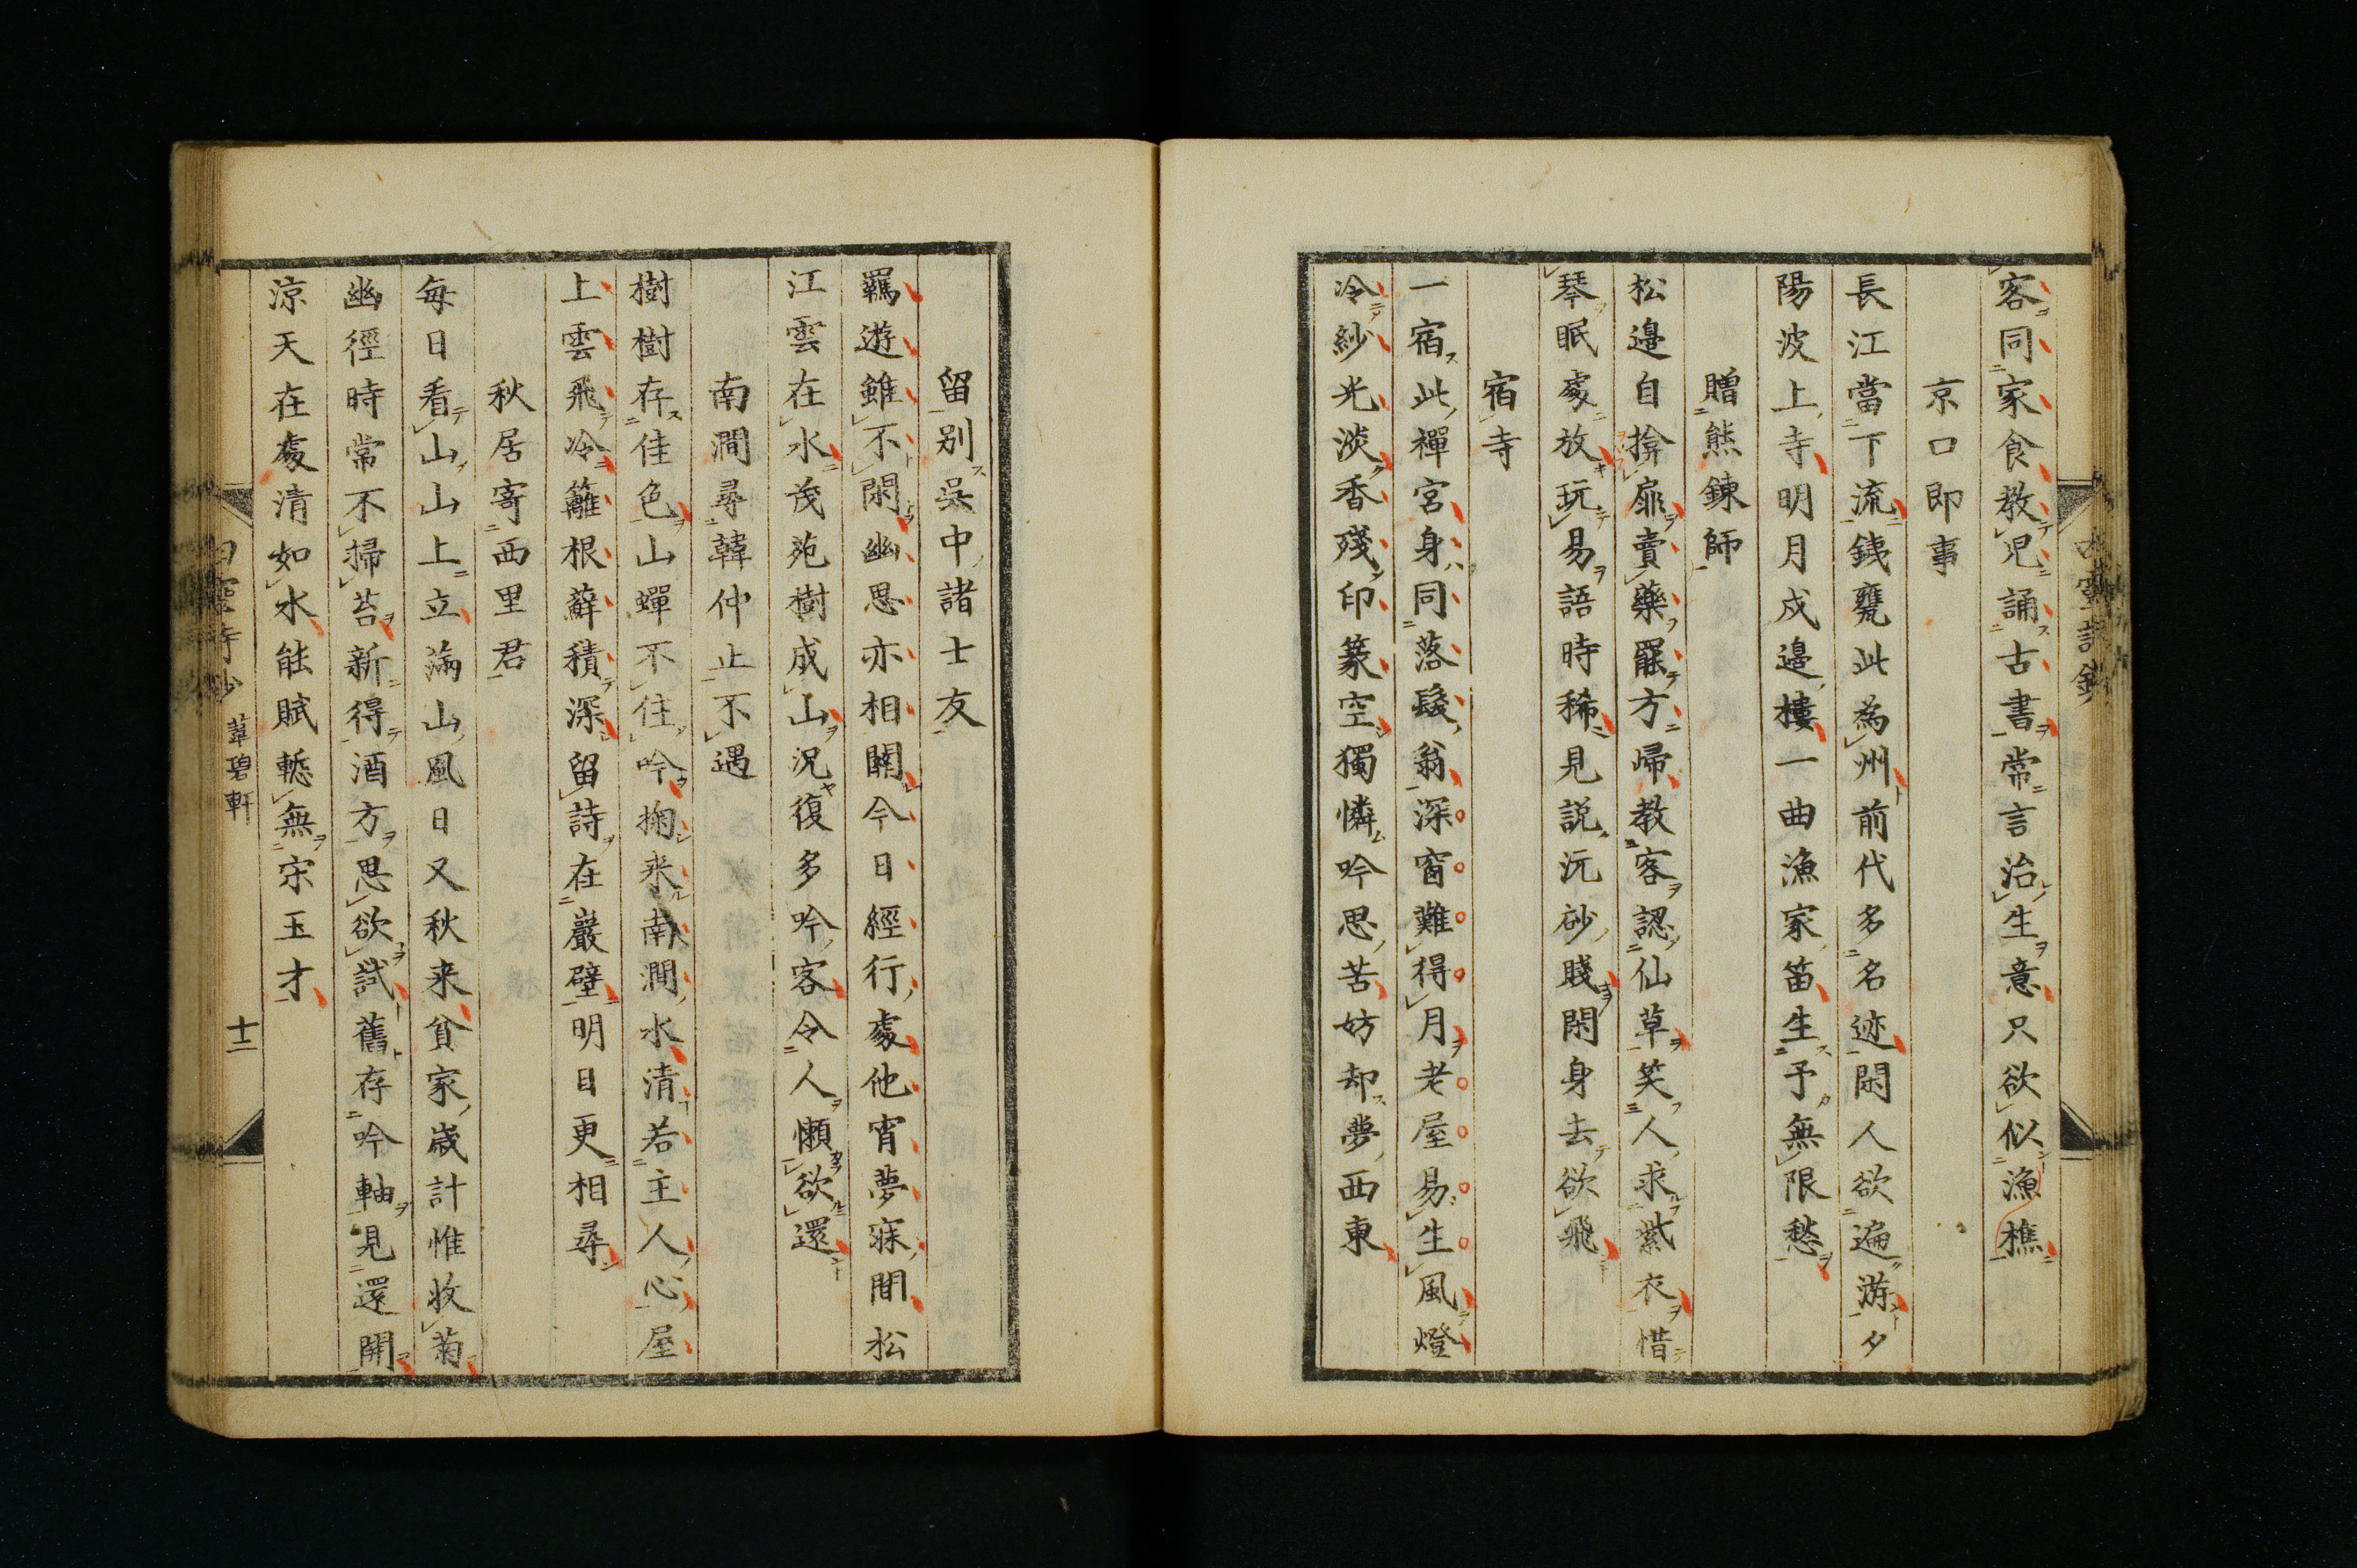 客同家食教児誦古書常言治生意只欲似漁樵
京口即事
長江當下流銕甕此為州前代多名迹閑人欲遍游夕
陽波上寺明月戍邉樓一曲漁家笛生予無限愁
贈熊鍊師
松邉自揜扉賣藥罷方帰教客認仙草笑人求紫衣惜
琴眠處放玩易語時稀見説沅砂賤閑身去欲飛
宿寺
一宿此禪宮身同落髮翁深窗難得月老屋易生風燈
冷紗光淡香殘印篆空獨憐吟思苦妨却夢西東
留別吳中諸士友
羈遊雖不閑幽思亦相關今日經行處他宵夢寐間松
江雲在水茂苑樹成山況復多吟客令人懶欲還
南澗尋韓仲止不遇
樹樹存佳色山蟬不住吟掬来南澗水清若主人心屋
上雲飛冷籬根蘚積深留詩在巖壁明日更相尋
秋居寄西里君
每日看山山上立滿山風日又秋来貧家歳計惟收菊
幽徑時常不掃苔新得酒方思欲試舊存吟軸見還開
涼天在處清如水能賦慙無宋玉才
葦碧軒
十二